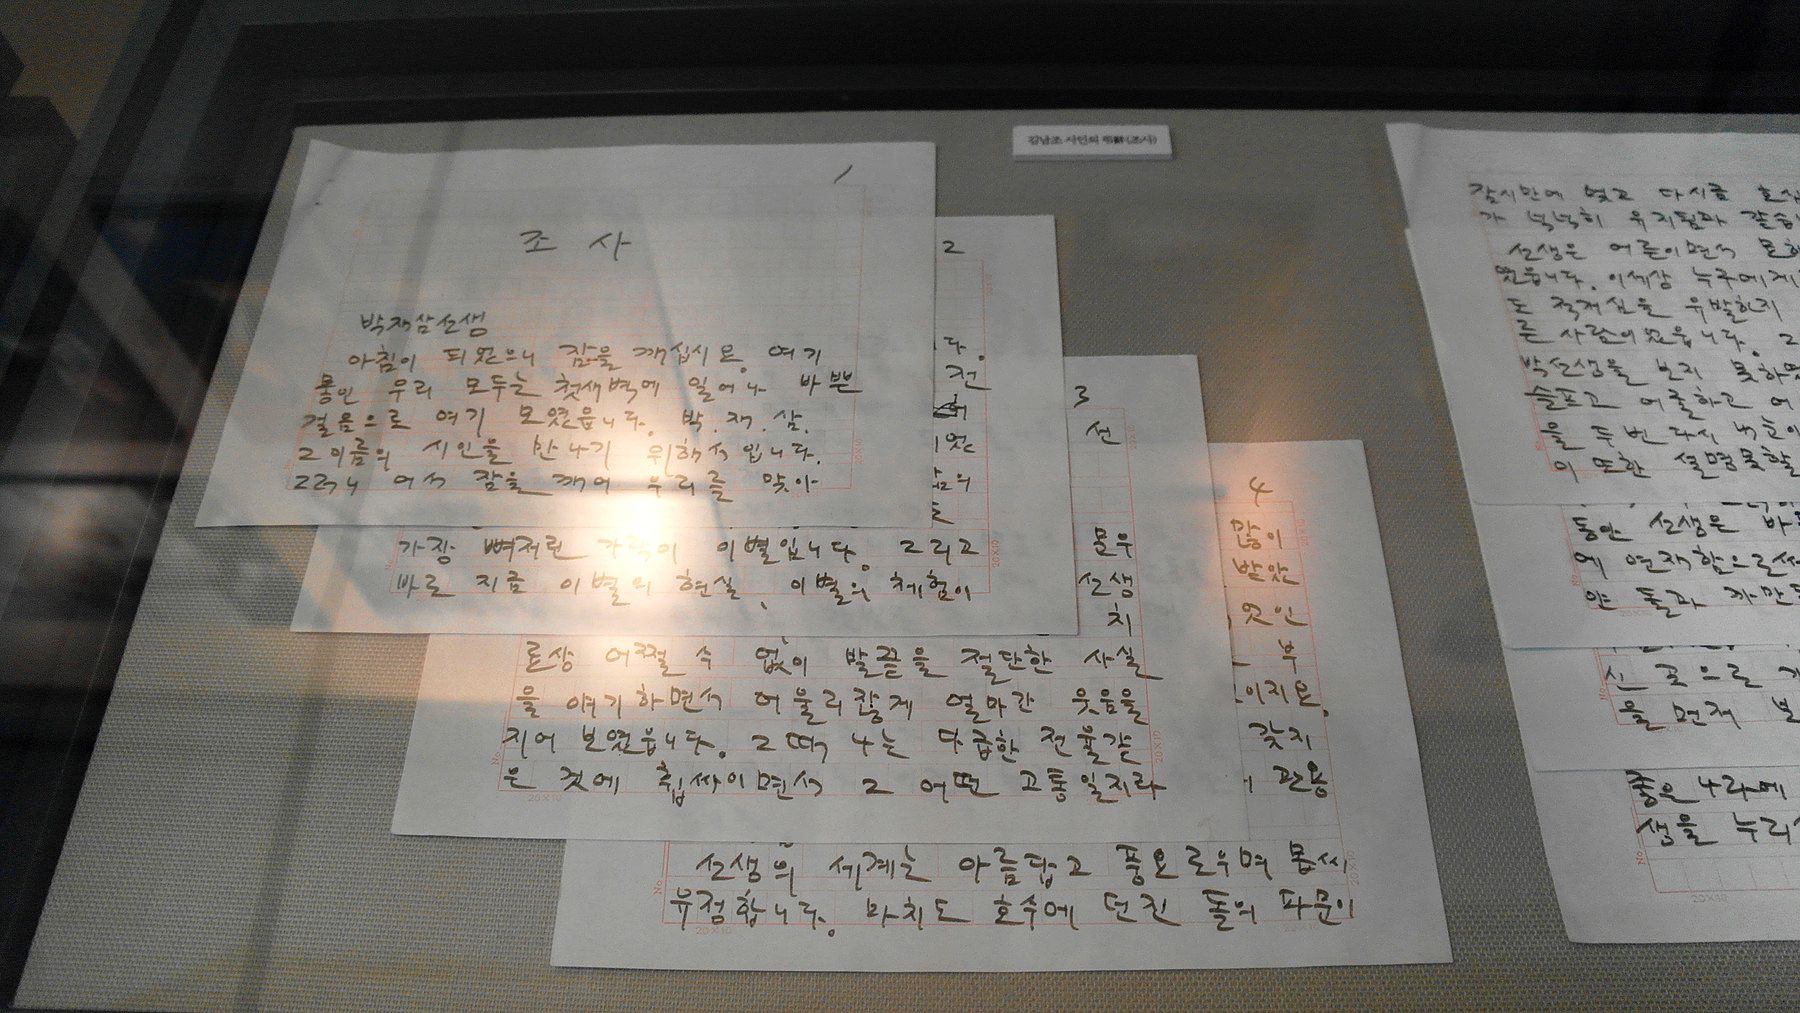 김남조 시인의 弔辭(조사)
1
조 사
박재삼선생
아침이 되었으니 잠을 깨십시오. 여기
모인 우리 모두는 첫새벽에 일어나 바쁜
걸음으로 여기 모였읍니다. 박.재.삼.
그 이름의 시인을 만나기 위해서입니다.
그러니 어서 잠을 깨어 우리를 맞아
2
다.
전
었
의
가장 뼈저린 가락이 이별입니다. 그리고
바로 지금 이별의 현실, 이별의 체험이
3
선
문우
선생
치
료상 어쩔 수 없이 발끝을 절단한 사실
을 얘기하면서 어울리잖게 얼마간 웃음을
지어 보였읍니다. 그때 나는 다급한 전율같
은 것에 휩싸이면서 그 어떤 고통일지라
4
많이
받았
것인
부
이지요.
갖지
관용
선생의 세계는 아름답고 풍요로우며 몹시
유정합니다. 마치도 호수에 던진 돌의 파문이
잠시만에 멎고 다시금
가 넉넉히 유지됨과 같습
선생은 어른이면서
었읍니다. 이세상 누구에게
도 적개심을 유발하지
른 사람이었읍니다. 그
박선생을 보지 못하였
슬프고 어줄하고 어
을 두번 다시
의 또한 설명못할
동안 선생은 바
에 연재함으로써
얀 돌과 까만돌
신 곳으로
을 먼저 보
좋은 나라에
샘을 누리